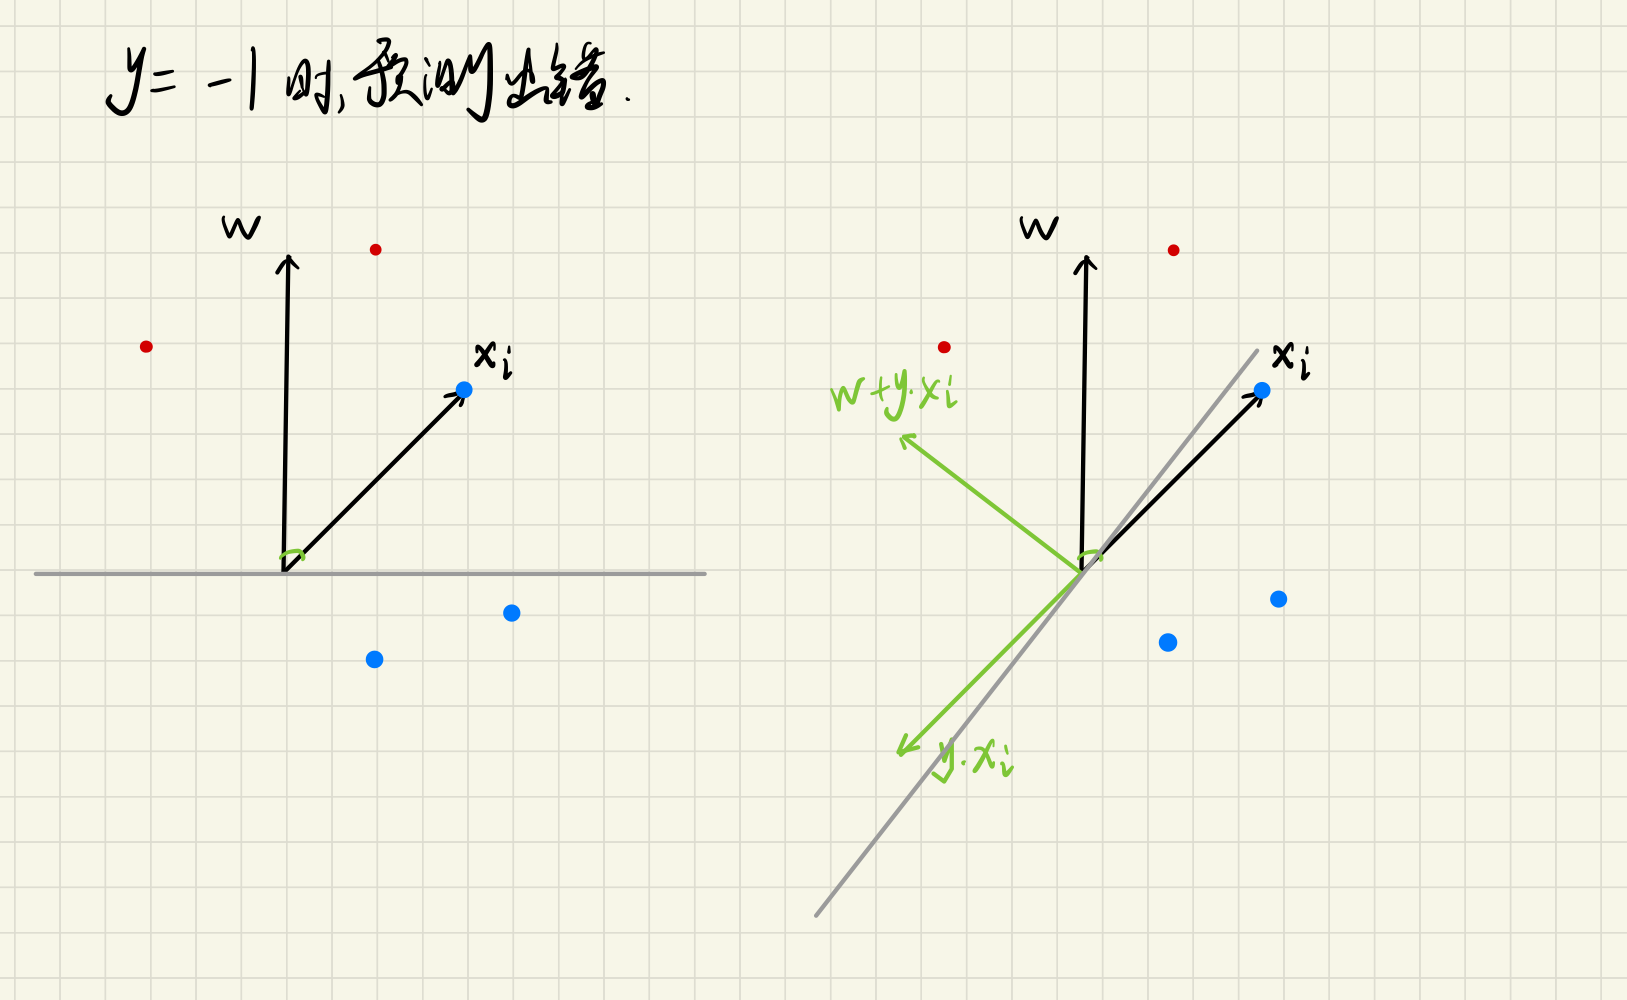 y = -1 时, 预测出错.
w
x i
w
x i
w + y · x i
y · x i